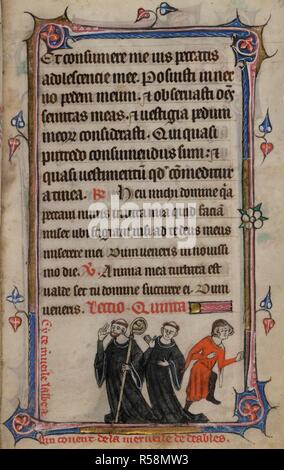 Et consumere me uis peccatis
adolescencie mee. Posuisti in ner
uo pedem meum. & obseruasti oēs
semitas meas. & uestigia pedum
meor considerasti. Qui quasi
putredo consumendus sum: &
quasi uestimentū qd comeditur
a tinea. R Heu michi domine qa
peccaui nimis in uita mea quid faciā
miser ubi fugiam nisi ad te deus meus
miserere mei Dum ueneris in nouissi
mo die. V. Anima mea turbata est
ualde set tu domine succurre ei Dum
ueneris. Lectio Quinta
Cy
un couent de la merueile de deables.
alamy
Image ID: R58MW3
www.alamy.com